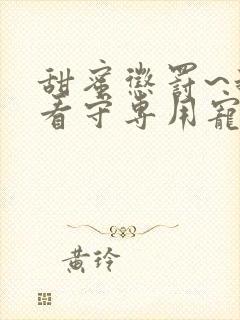 甜蜜懲罰~
看守專用寵
黃玲